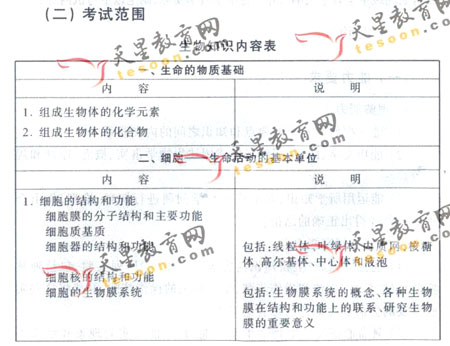 （二）考试范围
生物知识内容表
一、生命的物质基础
内 容 说 明
1. 组成生物体的化学元素
2. 组成生物体的化合物
二、细胞——生命活动的基本单位
内 容 说 明
1. 细胞的结构和功能
细胞膜的分子结构和主要功能
细胞质基质
细胞器的结构和功能 包括:线粒体、叶绿体、内质网、核糖
体、高尔基体、中心体和液泡
细胞核的结构和功能
细胞的生物膜系统 包括:生物膜系统的概念、各种生物
膜在结构和功能上的联系、研究生物
膜的重要意义
天星教育网
tesoon.com
天星教育网
tesoon.com
天星教育网
tesoon.com
天星教育网
tesoon.com
天星教育网
tesoon.com